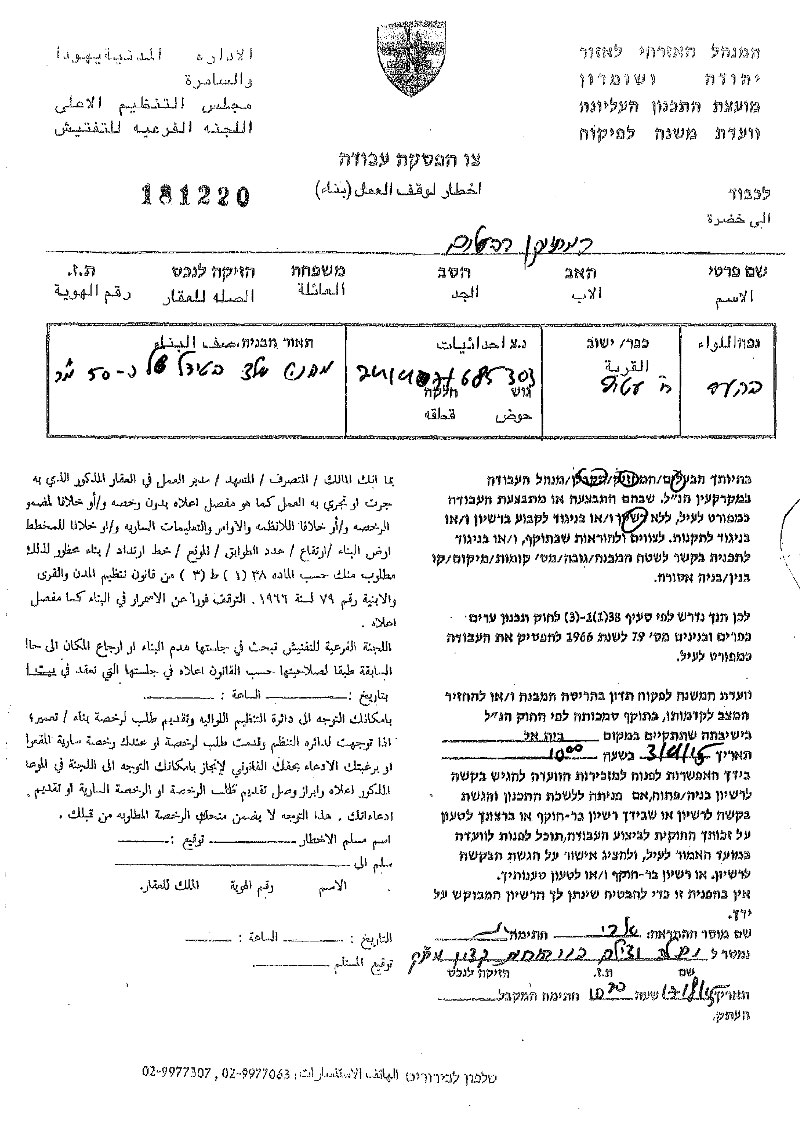 המנהל האזרחי לאזור
יהודה ושומרון
מועצת התכנון העליונה
וועדת משנה לפיקוח
الاداره المدنية يهودا
والسامرة
مجلس التنظيم الاعلى
اللجنه الفرعيه للتفتيش
צו הפסקת עבודה
اخطار لوقف العمل (بناء)
181220
לכבוד
الى حضرة
שם פרטי האב הסב משפחה הזיקה לנכס ת.ז.
الاسم الاب الجد العائلة الصله للعقار رقم الهوية
נפה/اللواء כפר/ישוב נ.צ احداثيات תאור הבניה/وصف البناء
القرية
גוש חלקה
حوض قطعة
בהיותך הבעלים/המחזיק/הקבלן/מנהל העבודה
במקרקעין הנ"ל. שבהם התבצעה או מתבצעת העבודה
כמפורט לעיל, ללא רשיון ו/או בניגוד לקבוע ברשיון ו/או
בניגוד לתקנות. לצווים ולהוראות שבתוקף, ו/או בניגוד
לתכנית בקשר לשטח המבנה/גובה/מס' קומות/מיקום/קו
בנין/בניה אסורה.
לכן הנך נדרש לפי סעיף 38(1)-(3) לחוק תכנון ערים
כפרים ובנינים מס' 79 לשנת 1966 להפסיק את העבודה
כמפורט לעיל.
וועדת המשנה לפקוח תדון בהריסת המבנה ו/או להחזיר
המצב לקדמותו, בתוקף סמכותה לפי החוק הנ"ל
בישיבתה שתתקיים במקום בית אל
תאריך בשעה 10⁰⁰
בידך האפשרות לפנות למזכירות הוועדה להגיש בקשה
לרשיון בניה/פתוח, אם פניתה ללשכת התכנון והגשת
בקשה לרשיון או שבידך רשיון בר-תוקף או ברצונך לטעון
על זכותך החוקית לביצוע העבודה, תוכל לפנות לוועדה
במועד האמור לעיל, ולהציג אישור על הגשת הבקשה
לרשיון. או רשיון בר-תוקף ו/או לטעון טענותיך.
אין בהפניה זו כדי להבטיח שינתן לך הרשיון המבוקש על
ידך.
שם מוסר ההתראה: חתימה
נמסר ל
שם ת.ז. הזיקה לנכס
תאריך שעה חתימת המקבל
העתק.
بما انك المالك / المتصرف / المتعهد / مدير العمل في العقار المذكور الذي به
جرت او تجري به العمل كما هو مفصل اعلاه بدون رخصه و/أو خلافا لمضمون
الرخصه و/أو خلافا للانظمه والاوامر والتعليمات الساريه و/او خلافا للمخطط
ارض البناء / ارتفاع / عدد الطوابق / الموقع / خط ارتداد / بناء محظور لذلك
مطلوب منك حسب الماده ٣٨ (١) ط (٣) من قانون تنظيم المدن والقرى
والابنية رقم ٧٩ لسنة ١٩٦٦. التوقف فورا عن الاصرار في البناء كما مفصل
اعلاه.
اللجنة الفرعية للتفتيش تبحث في جلستها هدم البناء او ارجاع المكان الى حالته
السابقة طبقا لصلاحيتها حسب القانون اعلاه في جلستها التي تعقد في
بتاريخ: الساعة:
بامكانك التوجه الى دائرة التنظيم اللوائيه وتقديم طلب لرخصة بناء / تعمير؛
اذا توجهت لدائره التنظم وقدمت طلب لرخصة او عندك رخصة سارية المفعول
او برغبتك الادعاء بحقك القانوني لانجاز بامكانك التوجه الى اللجنة في الموعد
المذكور اعلاه وابراز وصل تقديم طلب الرخصة او الرخصة السارية او تقديم
ادعاءاتك. هذا التوجه لا يضمن منحك الرخصة المطلوبه من قبلك.
اسم مسلم الاخطار توقيع:
سلم الى
الاسم رقم الهوية المالك للعقار.
التاريخ: الساعة:
توقيع المستلم
טלפון לבירורים الهاتف الاستفسارات: 02-9977063, 02-9977307